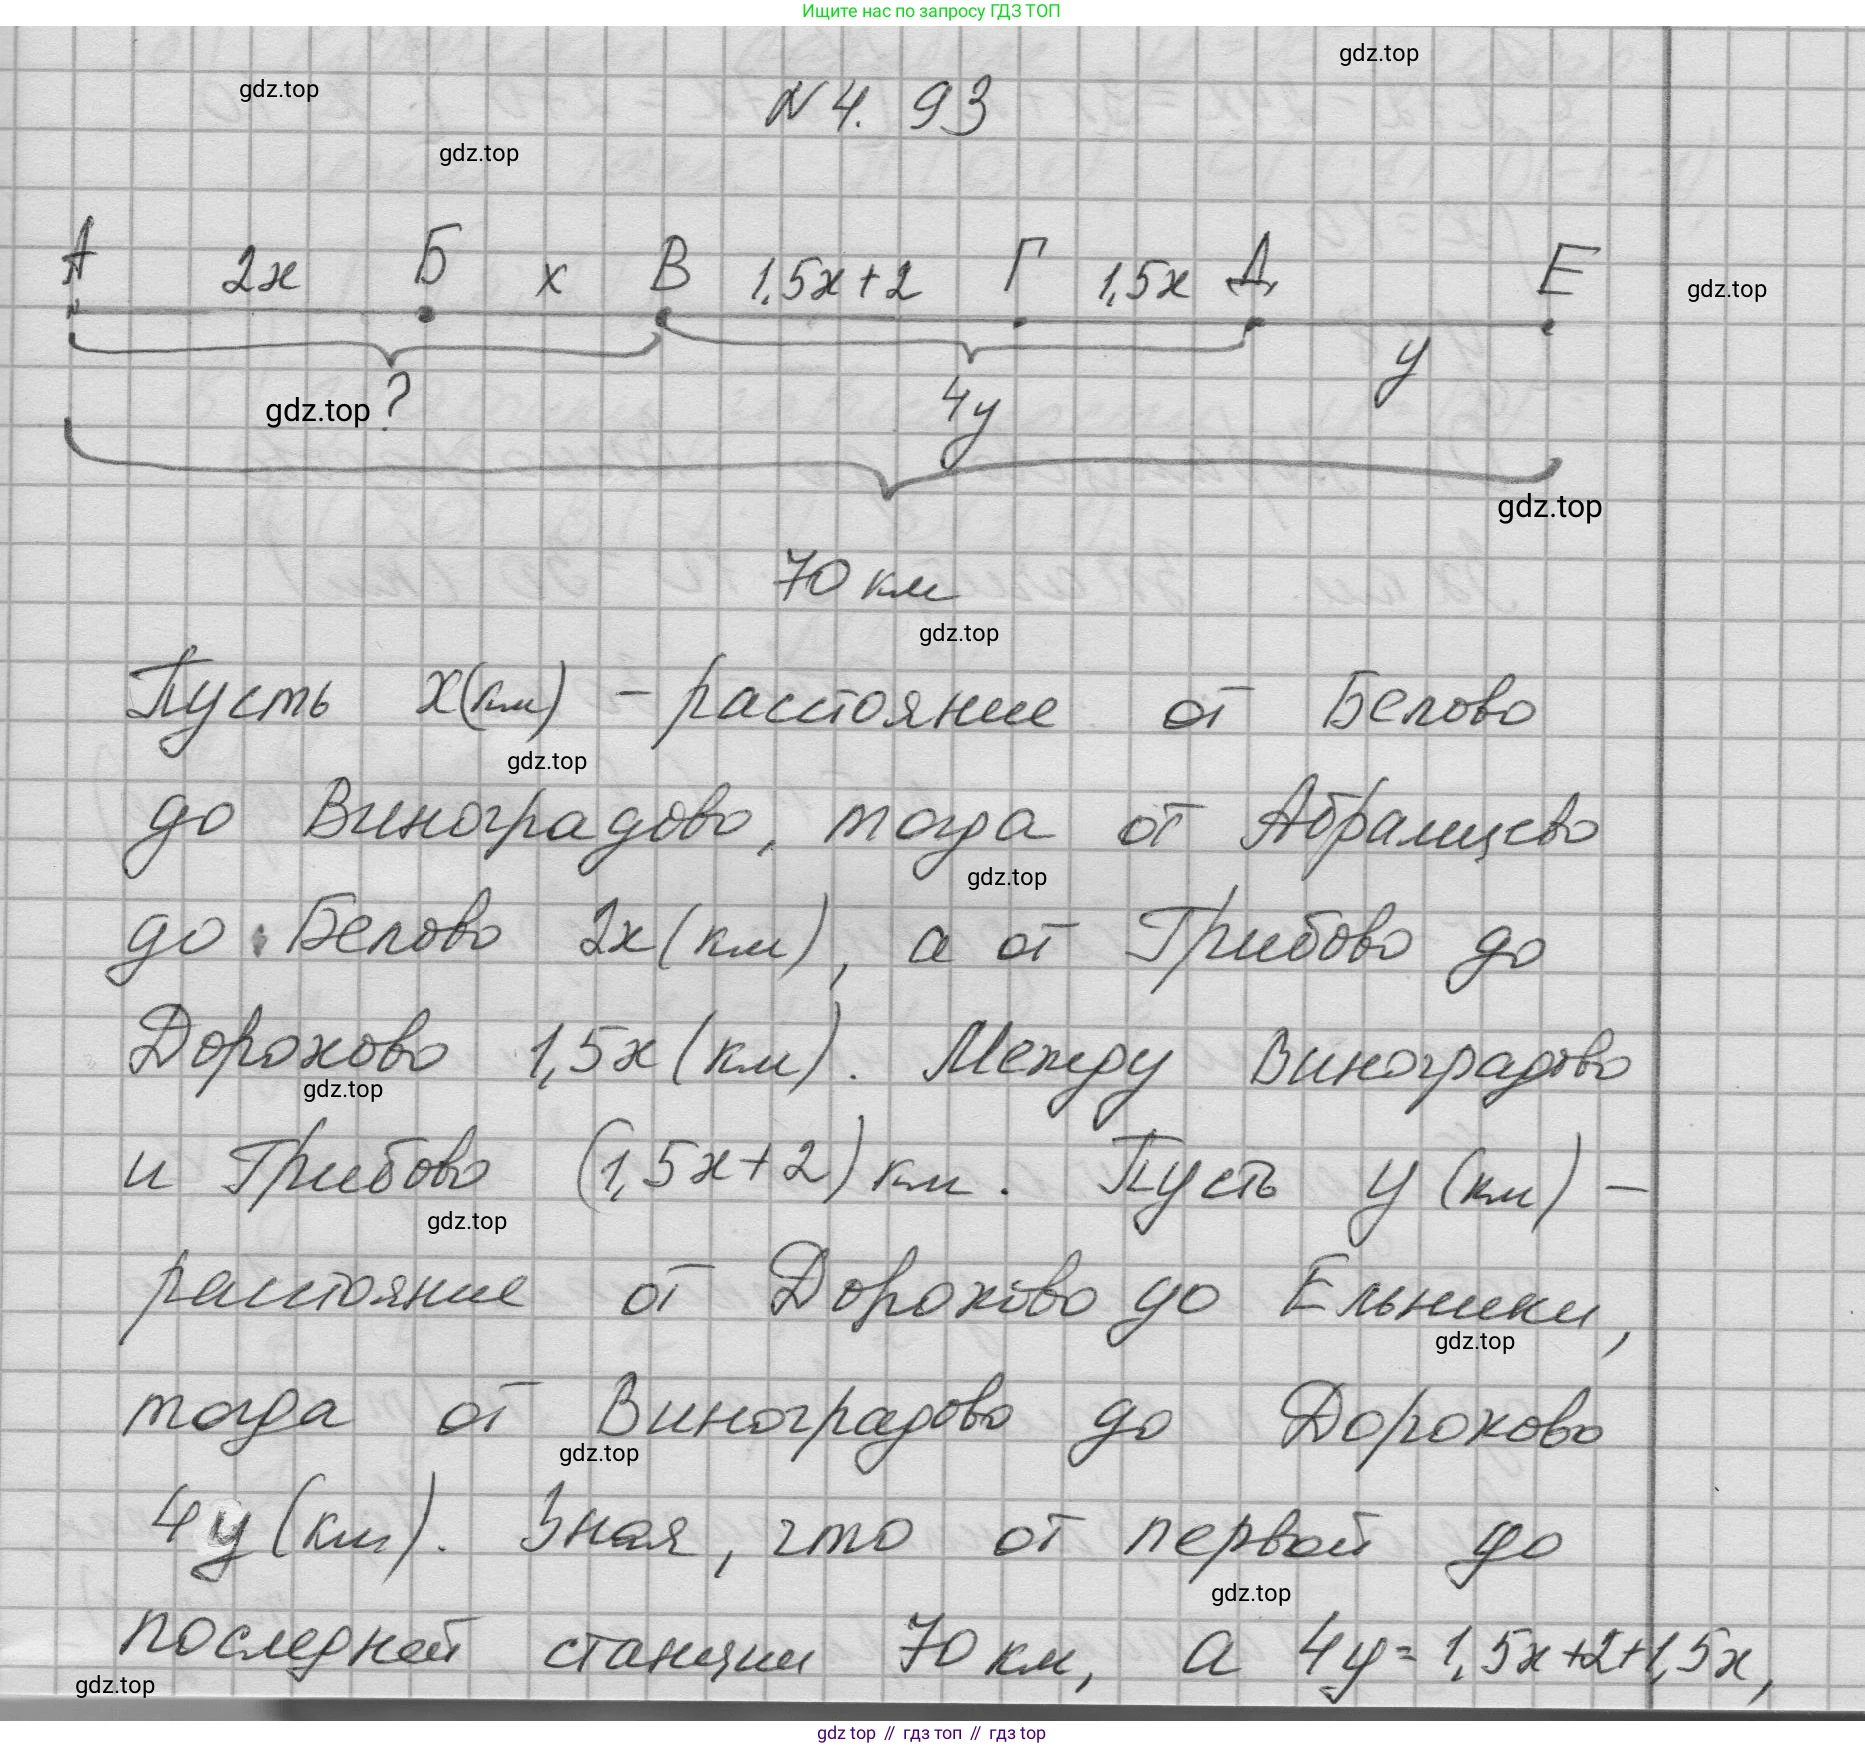 Ищите нас по запросу ГДЗ ТОП
gdz.top
gdz.top
N 4. 93
gdz.top
А 2x Б x В 1,5x+2 Г 1,5x Д Е
gdz.top
y
gdz.top ? 4y
gdz.top
70 км
gdz.top
Пусть x(км) - расстояние от Белово
gdz.top
до Виноградово, тогда от Абрамцево
gdz.top
до Белово 2x(км), а от Грибово до
Дорохово 1,5x(км). Между Виноградово
gdz.top
и Грибово (1,5x+2)км. Пусть y (км) -
gdz.top
расстояние от Дорохово до Ельники,
gdz.top
тогда от Виноградово до Дорохово
gdz.top
4y(км). Зная, что от первой до
gdz.top
последней станции 70 км, а 4y=1,5x+2+1,5x,
gdz.top
gdz top // гдз топ // гдз top